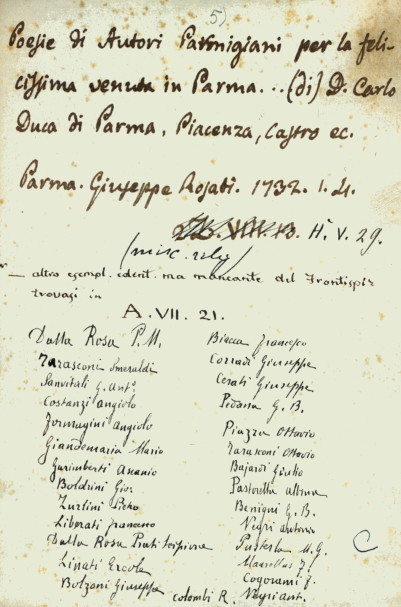 5)
Poesie di Autori Parmigiani per la feli-
cissima venuta in Parma... (di) D. Carlo
Duca di Parma, Piacenza, Castro ec.
Parma. Giuseppe Rosati. 1732. 1. 4.
H. V. 29.
(misc. rely)
altro esempl. ident. ma mancante del Frontispiz
trovasi in
A. VII. 21.
Dalla Rosa P. M.
Tarasconi Smeraldi
Sanvitali G. Antº
Costanzi angiolo
Formagini Angiolo
Giandemaria Mario
Gurimberti Ascanio
Boldrini Gios
Zurlini Pietro
Liberati
Dalla Rosa Prati Scipione
Linati Ercole
Bolzoni Giuseppe
Biacca Francesco
Corradi Giuseppe
Cerati Giuseppe
G. B.
Piazza Ottavio
Tarasconi Ottavio
Bajardi Giulio
Pastorella
Benigni G. B.
Negri antonio
Pusterla M. G.
C
colombi R. Negri ant.